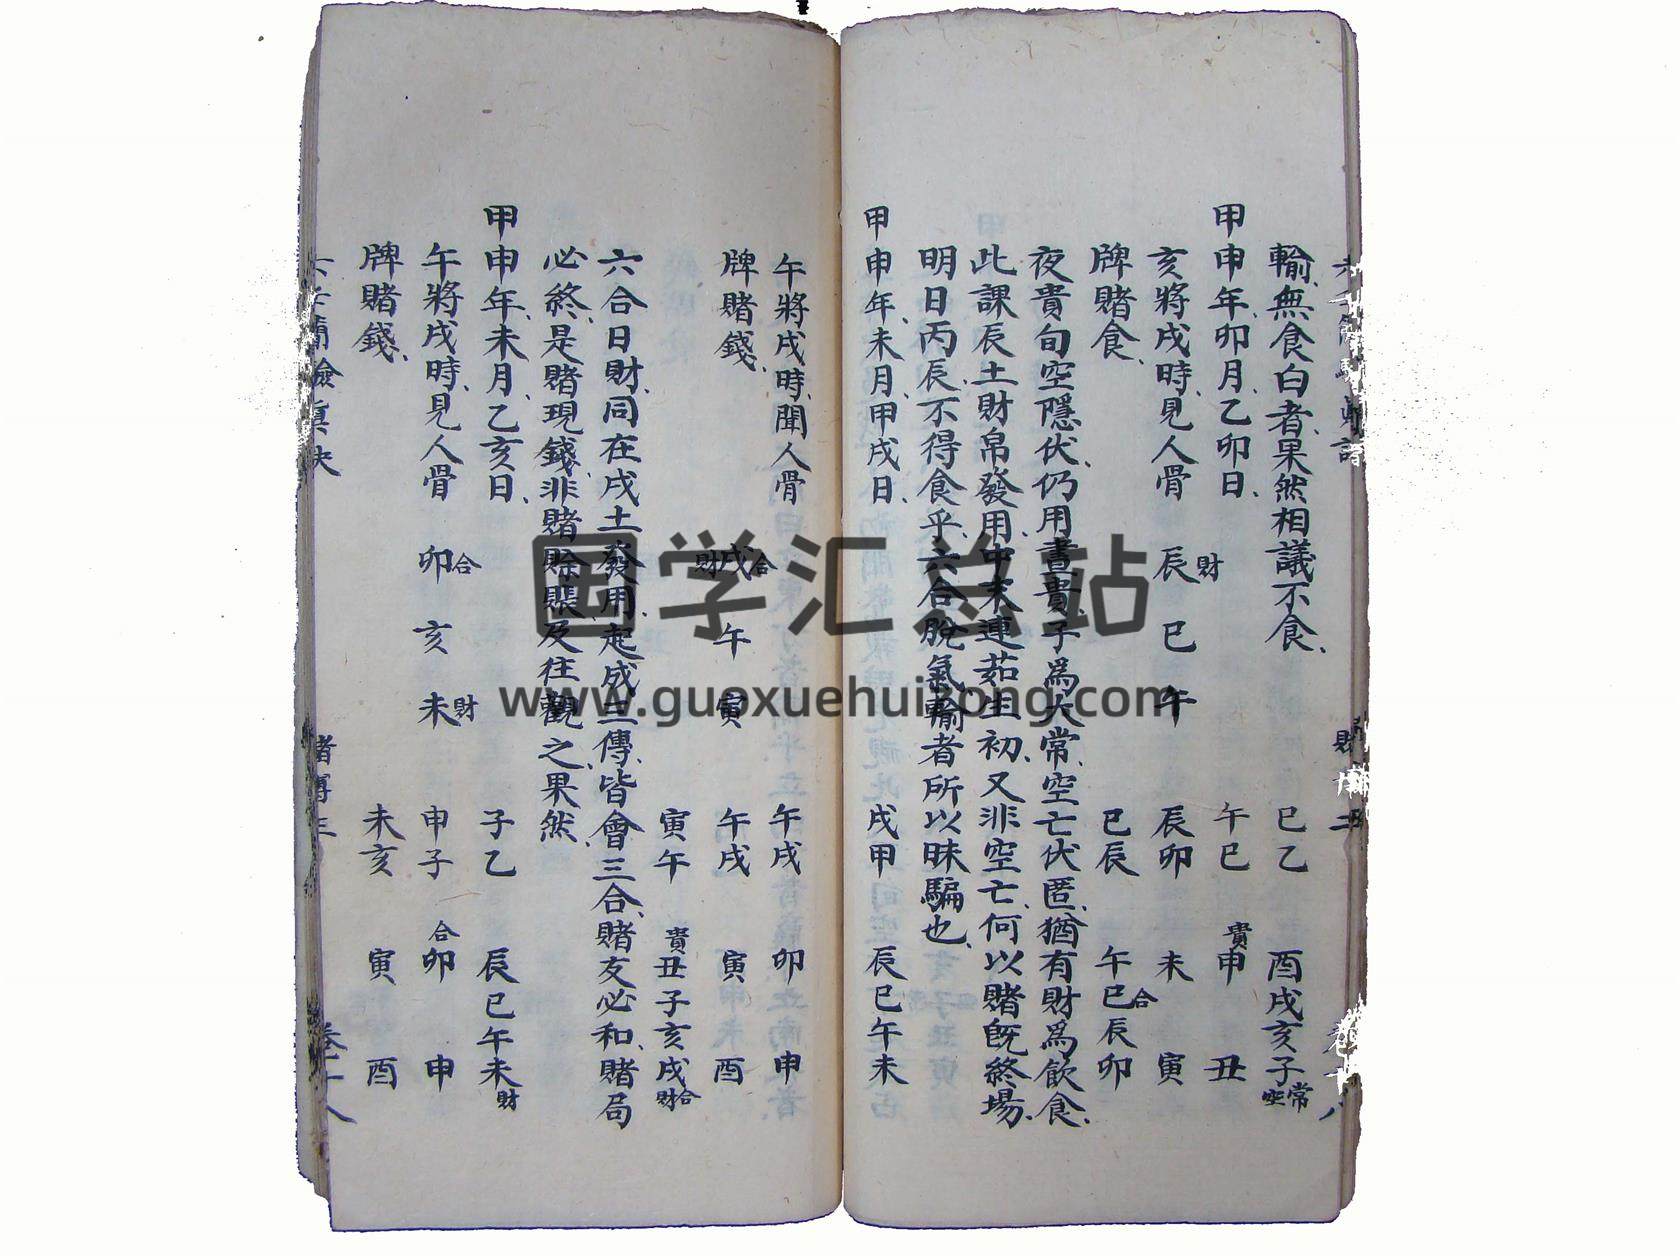 輸、無食白者、果然相議不食、
巳乙 酉戌亥子 常空
甲申年、卯月、乙卯日、
午巳 貴申 丑
亥將戌時、見人骨 辰財 巳 午
辰卯 未 寅
牌賭食、
巳辰 午巳合辰卯
夜貴旬空隱伏、仍用晝貴、子為大常、空亡伏匿、猶有財為飲食、
此課辰土財帛發用、中末連茹生初、又非空亡、何以賭既終場、
明日丙辰、不得食乎、六合脫氣、輸者所以昧騙也、
甲申年、未月、甲戌日、
戌甲 辰巳午未
午將戌時、聞人骨 戌合財 午 寅
午戌 卯 申
牌賭錢、
午戌 寅 酉
寅午 貴丑子亥戌合財
六合日財、同在戌土發用、起成三傳、皆會三合、賭友必和、賭局
必終、是賭現錢、非賭賒賬、及往觀之、果然、
甲申年、未月、乙亥日、
子乙 辰巳午未財
午將戌時、見人骨 卯合 亥 未財
申子 合卯 申
牌賭錢、
未亥 寅 酉
賭博三
国学汇总站
www.guoxuehuizong.com